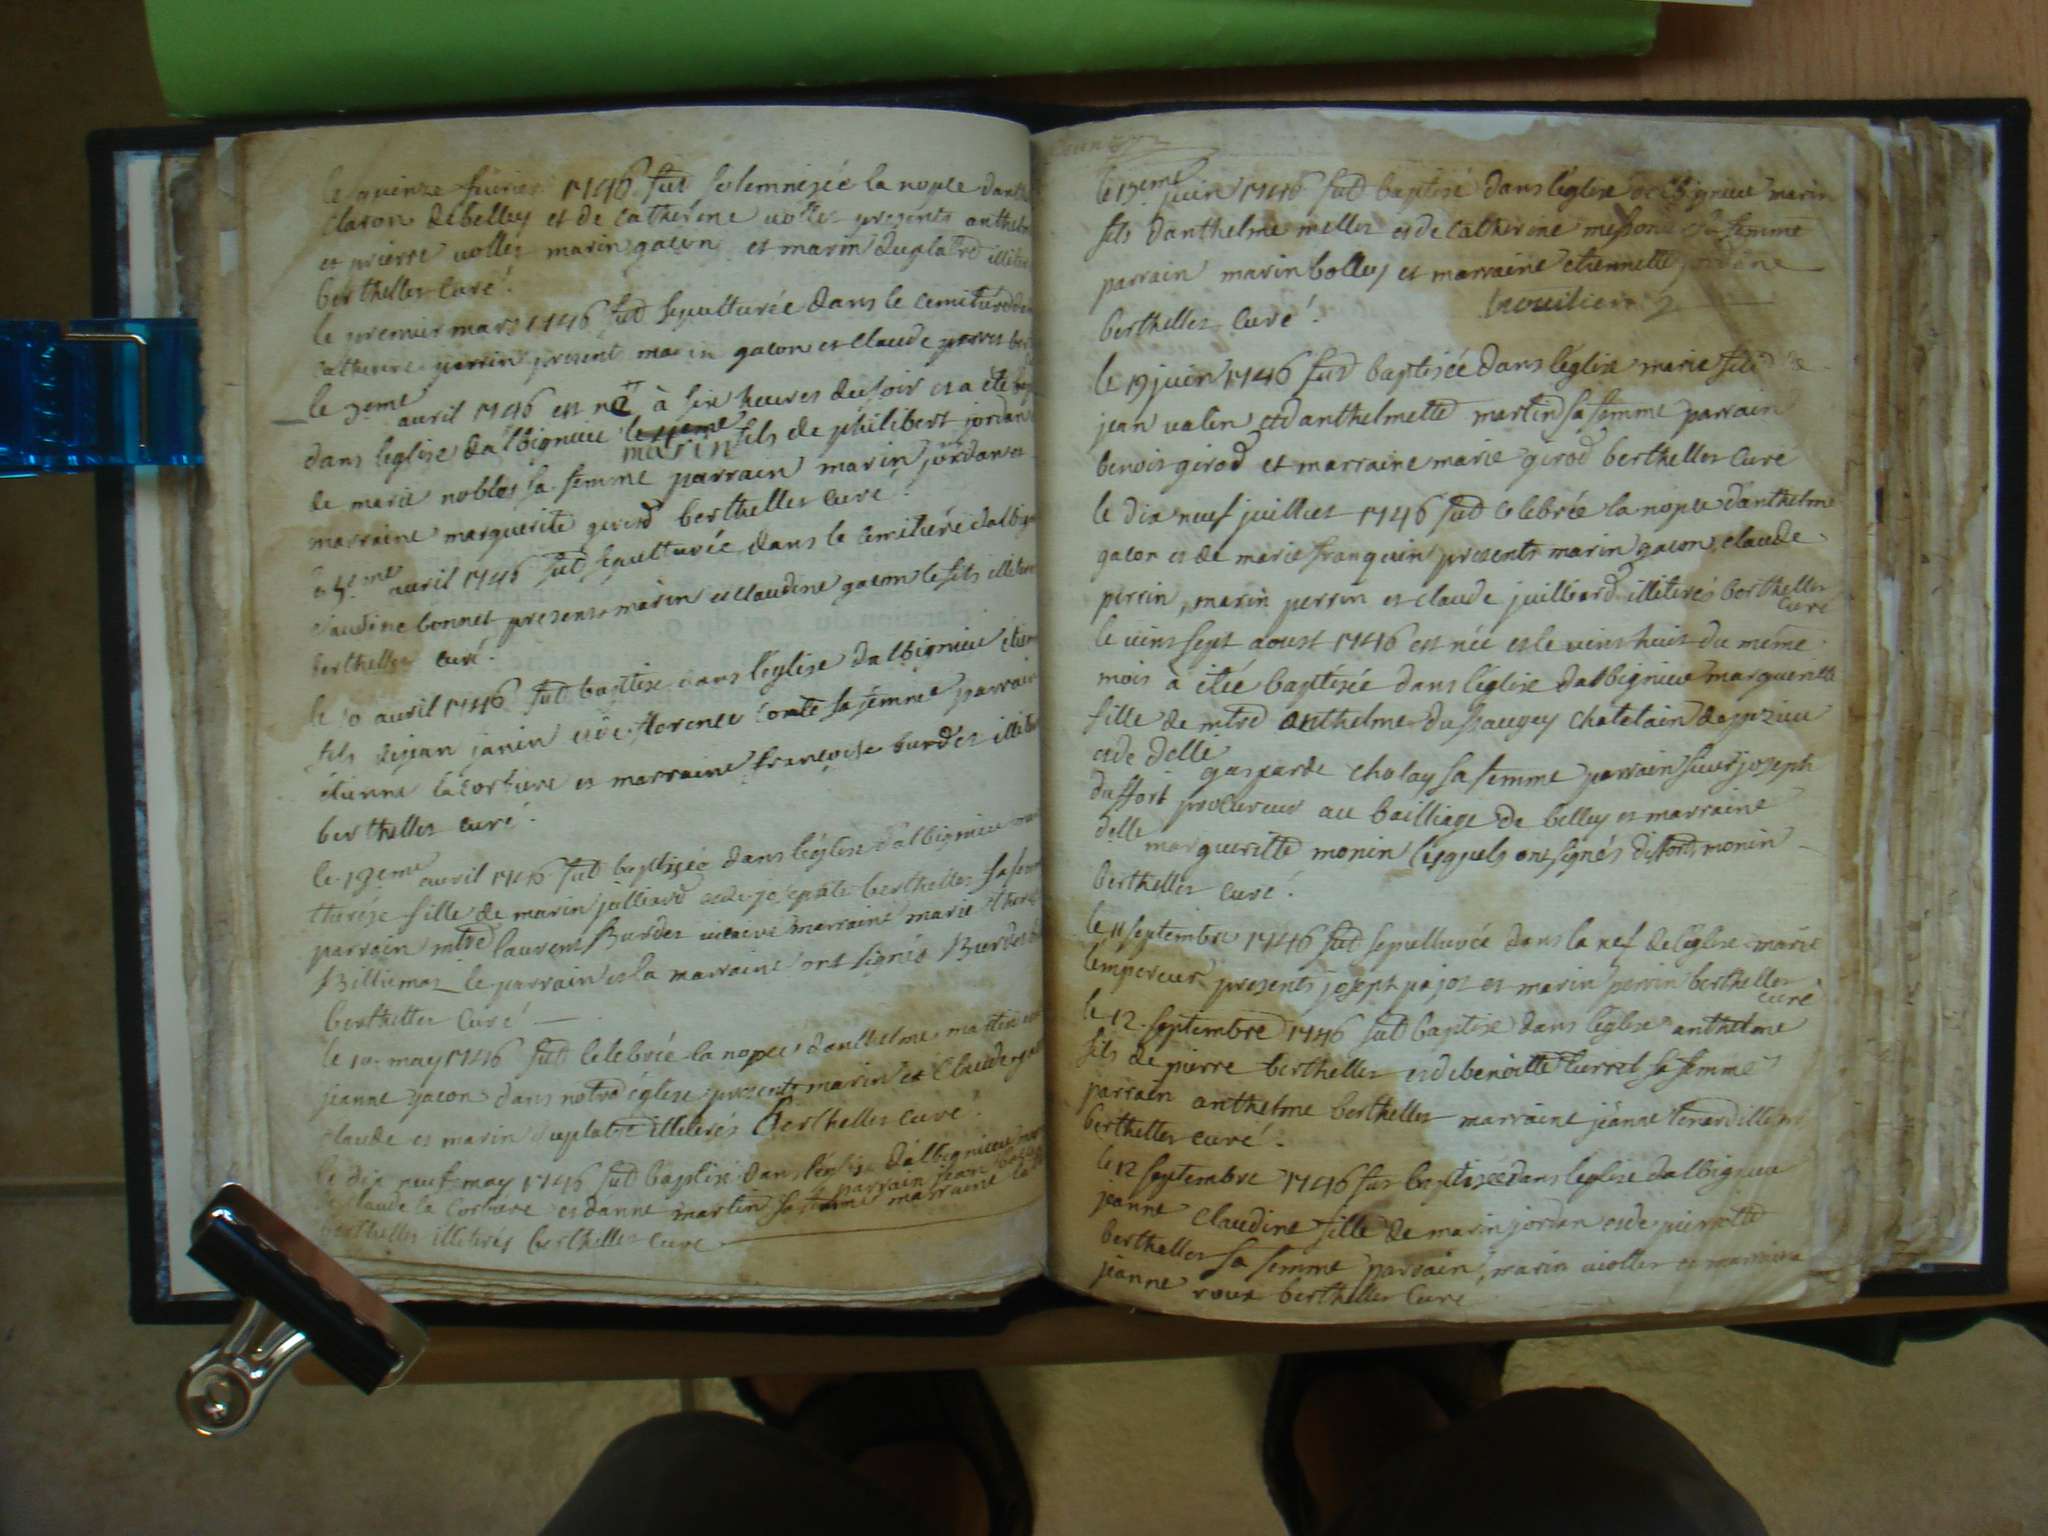 le quinze février 1746 fut solemnizée la nopce danth
claron debelley et de catherine vollet presents anthelm
et pierre vollet marin gacon et marin duplatre illiter
berthellet curé
le premier mars 1746 fut sepulturée dans le cemitiere
catherine perrin present marin gacon et claude perret ber
le 3eme avril 1746 est né à six heures du soir et a ete bap
dans leglise dalbignieu marin fils de philibert jordan
de marie noblet sa femme parrain marin jordan et
marraine marguerite girod berthellet curé
le 5eme avril 1746 fut sepulturée dans le cemitiére dalbign
claudine bonnet presents marin et claudine gacon le fils illiteré
berthellet curé
le 10 avril 1746 fut baptise dans léglise dalbignieu etien
fils de jean janin et de florence comte sa femme parrain
étienne la corbiere et marraine françoise burdet illite
berthellet curé
le 19eme avril 1746 fut baptisée dans léglise dalbignieu
therése fille de marin julliard et de josephte berthellet sa fem
parrain mtre laurent Burdet marraine marie there
Billiemaz le parrain et la marraine ont signés Burdet
berthellet curé
le 10 may 1746 fut celebrée la nopce danthelme martin
jeanne gacon dans notre église presents marin et claude ga
claude et marin duplatre illiterés berthellet curé
le dix neuf may 1746 fut baptisé dans léglise dalbignieu
parrain jean
de claude la corbiere et danne martin sa femme marraine
berthellet illiterés berthellet curé
le 13eme juin 1746 fut baptisé dans léglise dalbignieu marin
fils danthelme mellet et de catherine sa femme
parrain marin bolley et marraine etiennette
berthellet curé
le 19 juin 1746 fut baptisée dans léglise marie fille de
jean valin et danthelmette martin sa femme parrain
benoit girod et marraine marie girod berthellet curé
le dix neuf juillet 1746 fut celebrée la nopce danthelme
gacon et de marie franquin presents marin gacon claude
perrin, marin perrin et claude juilliard illiterés berthellet
curé
le vint sept aoust 1746 est née et le vint huit du même
mois à étée baptisée dans léglise dalbignieu margueritte
fille de mtre anthelme du saugey chatelain
et de delle gasparde cholay sa femme parrain sieur joseph
duffort procureur au bailliage de belley et marraine
delle margueritte monin lesquels ont signés monin
berthellet curé
le 11 septembre 1746 fut sepulturée dans la nef de léglise marie
lempereur presents joseph pajot et marin perrin berthellet
curé
le 12 septembre 1746 fut baptisé dans léglise anthelme
fils de pierre berthellet et de benoitte sa femme
parrain anthelme berthellet marraine jeanne
berthellet curé
le 12 septembre 1746 fut baptisée dans léglise dalbignieu
jeanne claudine fille de marin jordan et de pierrette
berthellet sa femme parrain marin viollet et marraine
jeanne roux berthellet curé